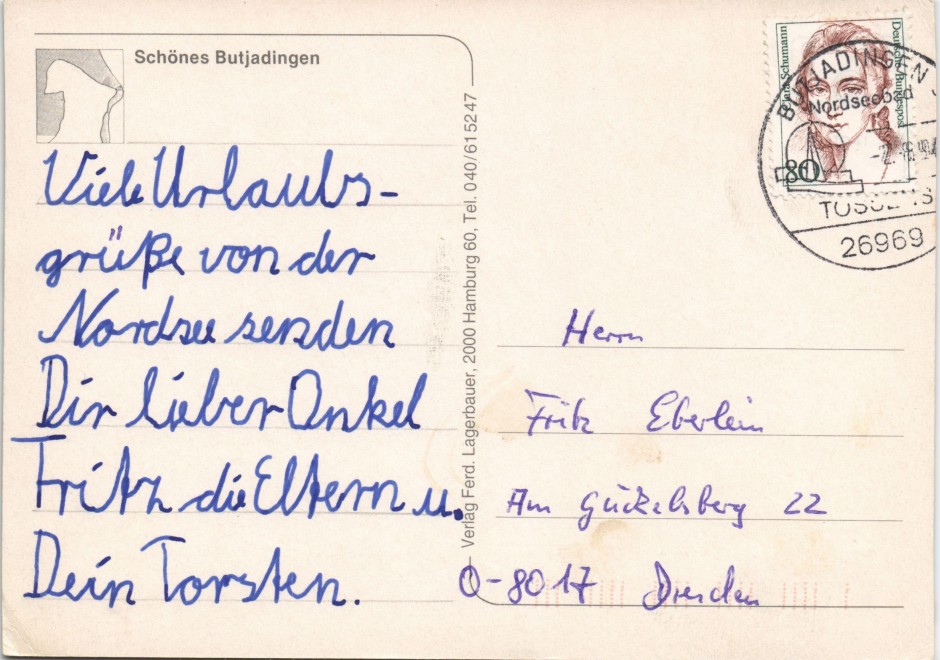 Schönes Butjadingen
Viele Urlaubs-
grüße von der
Nordsee senden
Dir lieber Onkel
Fritz die Eltern u.
Dein Torsten.
Verlag Ferd. Lagerbauer, 2000 Hamburg 60, Tel. 040/615247
Clara Schumann
Deutsche Bundespost
80
BUTJADINGEN
Nordseebad
26969
Herrn
Fritz Eberlein
Am Gückelsberg 22
O-8017 Dresden